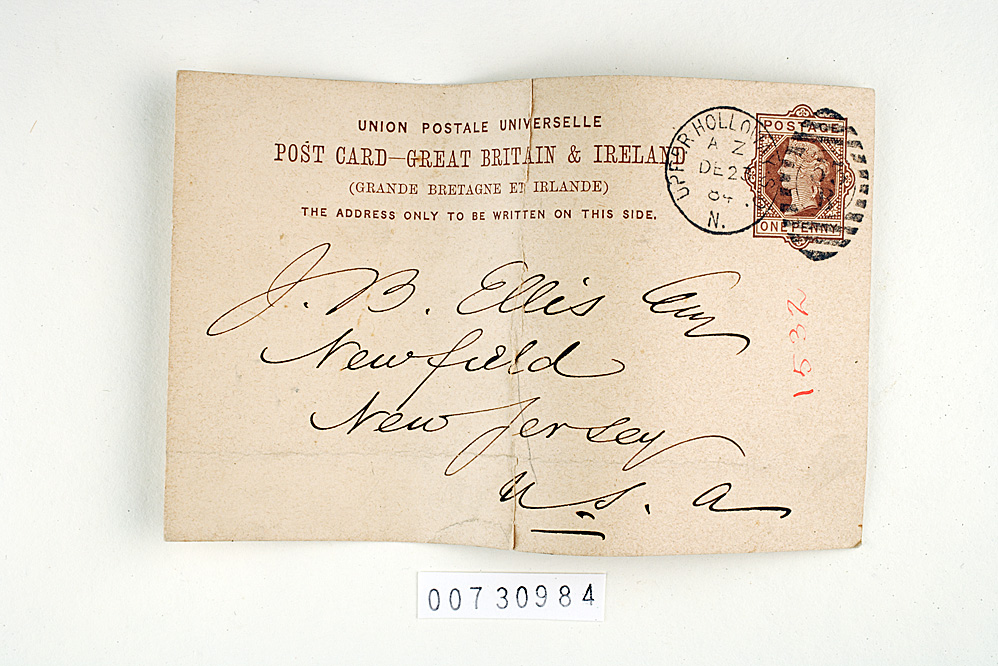 UNION POSTALE UNIVERSELLE
POST CARD—GREAT BRITAIN & IRELAND
(GRANDE BRETAGNE ET IRLANDE)
THE ADDRESS ONLY TO BE WRITTEN ON THIS SIDE.
UPPER HOLLOWAY
A Z
DE 23
84
N.
POSTAGE
ONE PENNY
J. B. Ellis Esq
Newfield
New Jersey
U. S. A
1532
00730984